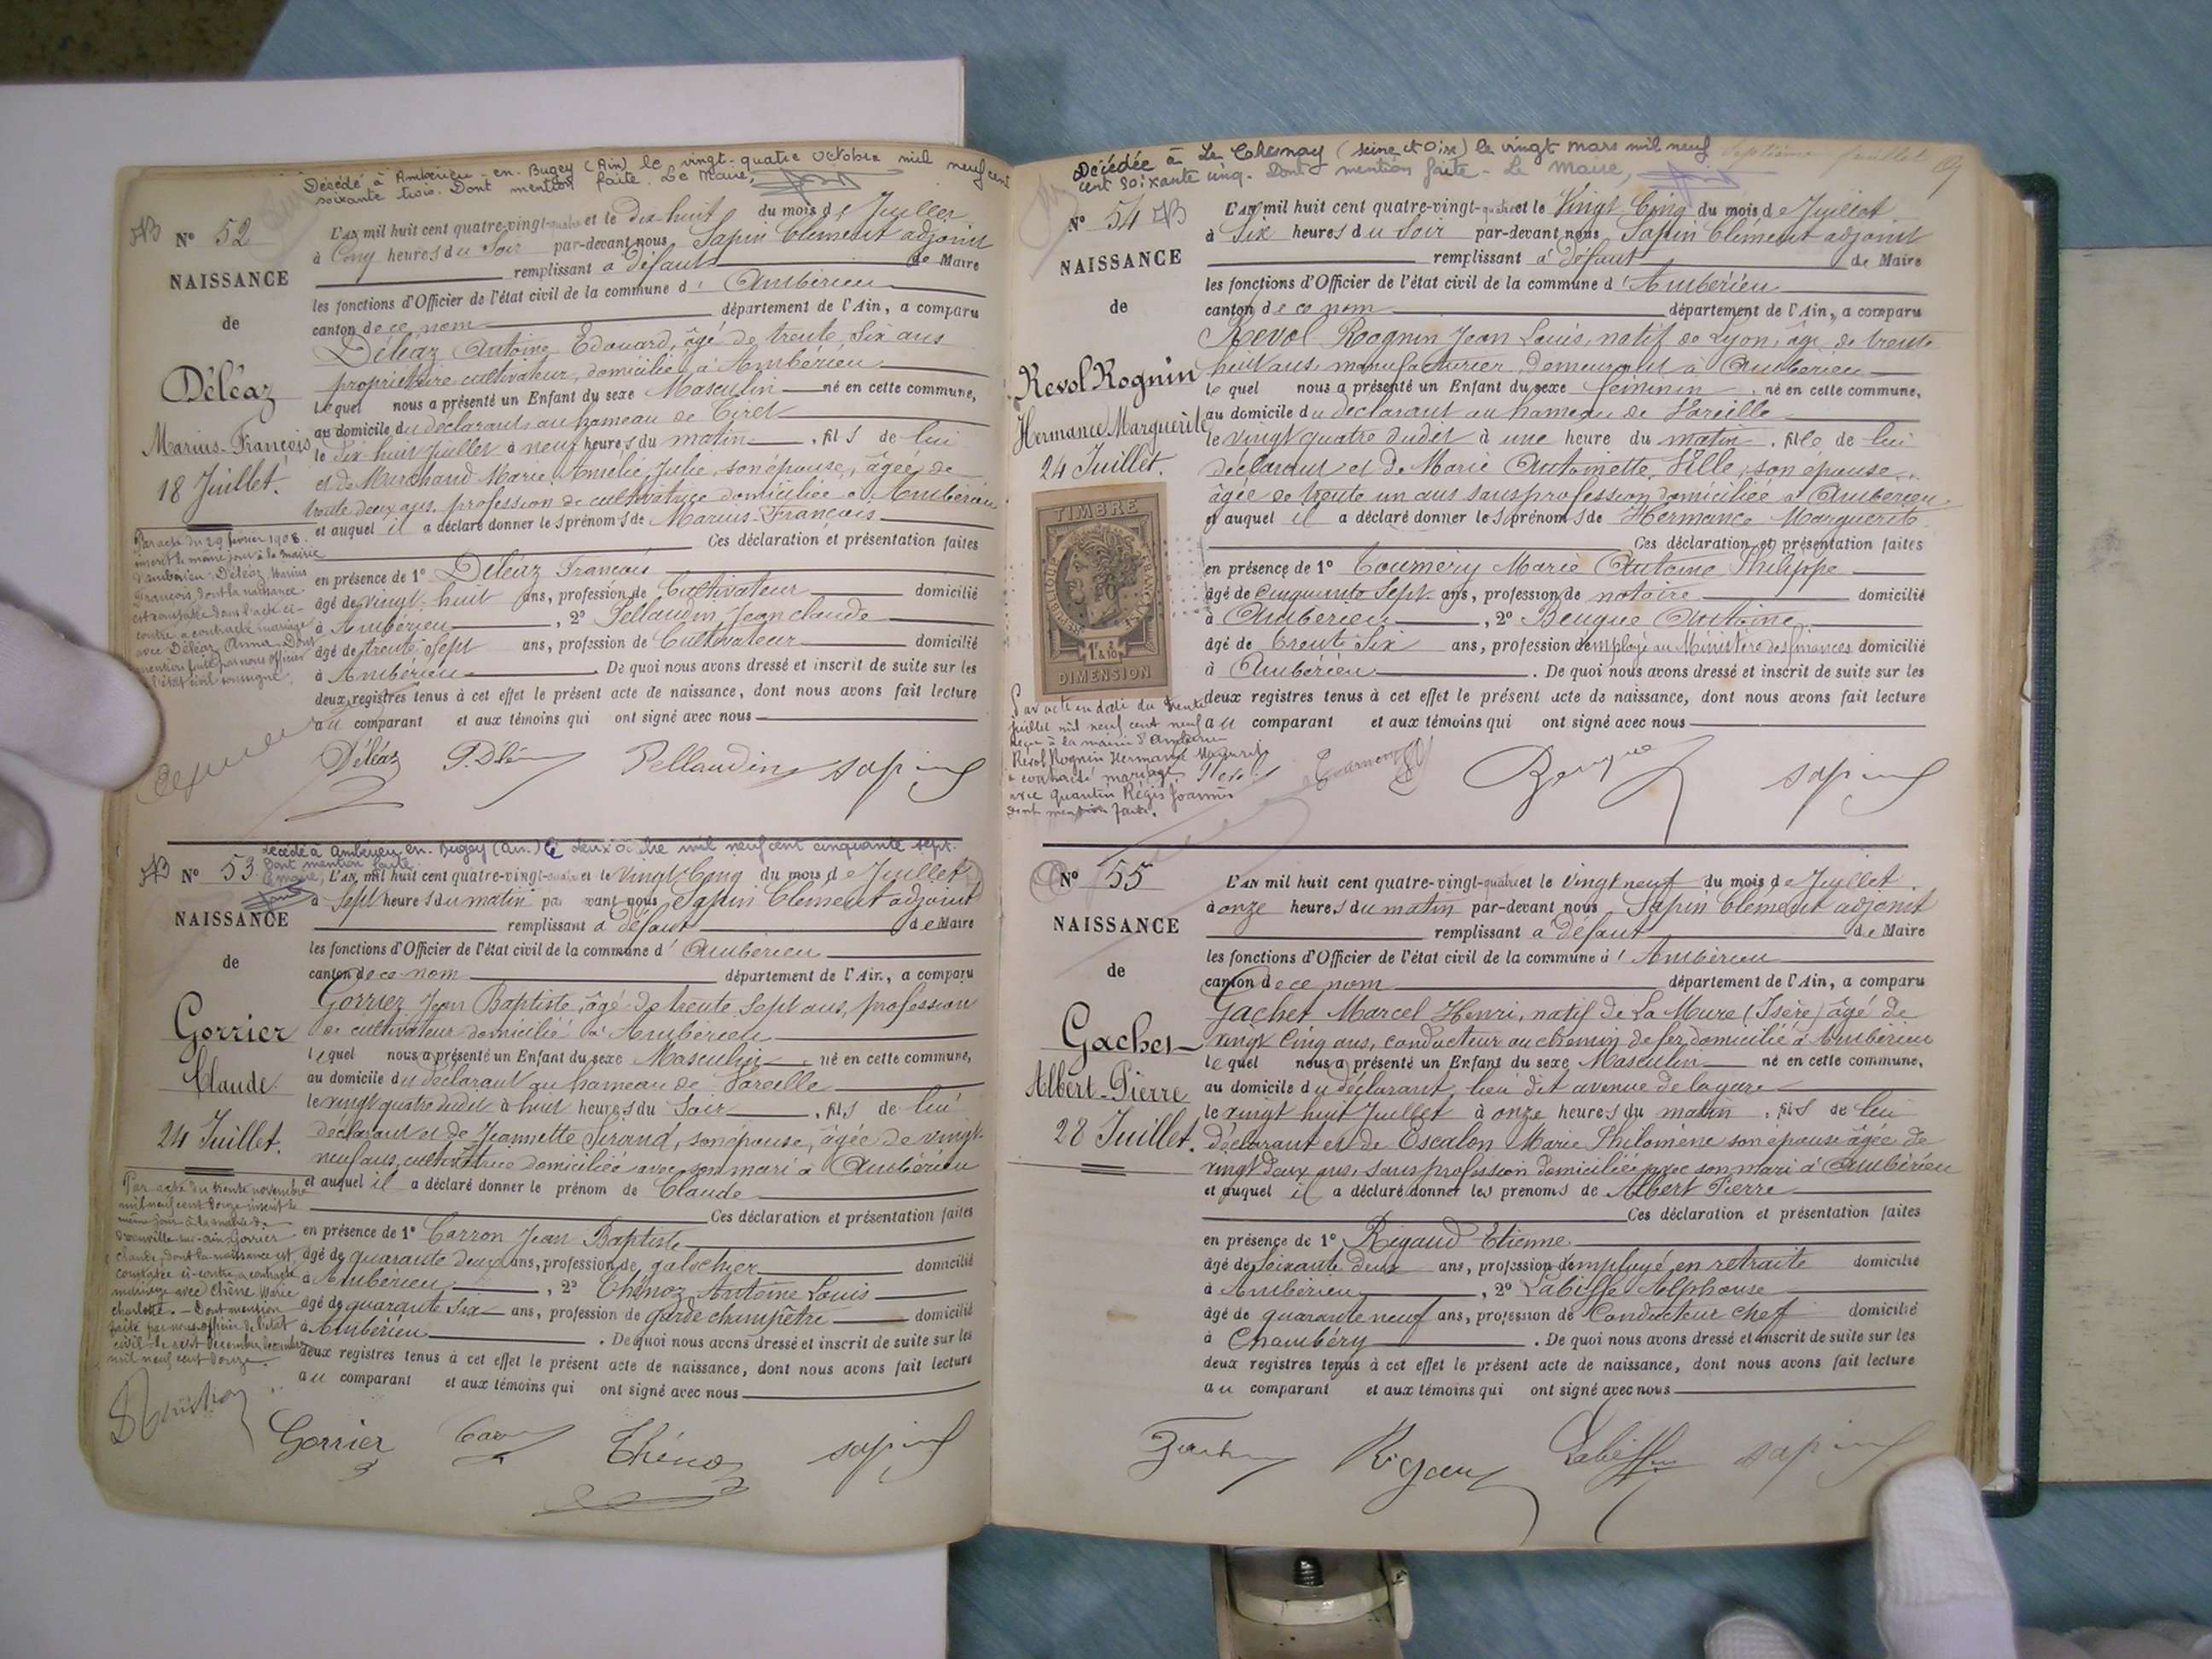 Décédé à Ambérieu-en-Bugey (Ain) le vingt-quatre octobre mil neuf cent
soixante trois. Dont mention faite. Le Maire,
N° 52
NAISSANCE
de
Déléaz
Marius-François
18 Juillet.
L'AN mil huit cent quatre-vingt-quatre et le dix huit du mois de Juillet
à Cinq heures du Soir par-devant nous Sapin Clément adjoint
remplissant à défaut de Maire
les fonctions d'Officier de l'état civil de la commune d'Ambérieu
canton de ce nom département de l'Ain, a comparu
Déléaz Antoine Edouard, âgé de trente six ans
propriétaire cultivateur, domicilié à Ambérieu
lequel nous a présenté un Enfant du sexe Masculin né en cette commune,
au domicile du déclarant au hameau de Tiret
le dix huit Juillet à neuf heures du matin, fils de lui
et de Marchand Marie Amélie Julie, son épouse, âgée de
trente deux ans, profession de cultivatrice domiciliée à Ambérieu
et auquel il a déclaré donner les prénoms de Marius-François
Ces déclaration et présentation faites
en présence de 1° Déléaz François
âgé de vingt-huit ans, profession de Cultivateur domicilié
à Ambérieu, 2° Pellaudin Jean Claude
âgé de trente sept ans, profession de Cultivateur domicilié
à Ambérieu. De quoi nous avons dressé et inscrit de suite sur les
deux registres tenus à cet effet le présent acte de naissance, dont nous avons fait lecture
au comparant et aux témoins qui ont signé avec nous
Par acte du 29 février 1908
inscrit le même jour à la mairie
d'Ambérieu, Déléaz Marius
François dont la naissance
est constatée dans l'acte ci-
contre a contracté mariage
avec Déléaz Anna. Dont
mention faite par nous officier
de l'état civil soussigné.
Déléaz Pellaudin Sapin
décédé à Ambérieu-en-Bugey (Ain) le deux mil neuf cent cinquante sept.
Dont mention faite.
Le maire,
N° 53
NAISSANCE
de
Gorrier
Claude
24 Juillet.
L'AN mil huit cent quatre-vingt-quatre et le Vingt Cinq du mois de Juillet
à Sept heures du matin par-devant nous Sapin Clément adjoint
remplissant à défaut de Maire
les fonctions d'Officier de l'état civil de la commune d'Ambérieu
canton de ce nom département de l'Ain, a comparu
Gorrier Jean Baptiste, âgé de trente sept ans, profession
de cultivateur domicilié à Ambérieu
lequel nous a présenté un Enfant du sexe Masculin né en cette commune,
au domicile du déclarant au hameau de Vareille
le vingt quatre dudit à huit heures du Soir, fils de lui
déclarant et de Jeannette Sirand, son épouse, âgée de vingt-
neuf ans, cultivatrice domiciliée avec son mari à Ambérieu
et auquel il a déclaré donner le prénom de Claude
Ces déclaration et présentation faites
en présence de 1° Carron Jean Baptiste
âgé de quarante deux ans, profession de galochier domicilié
à Ambérieu, 2° Thénoz Antoine Louis
âgé de quarante six ans, profession de garde champêtre domicilié
à Ambérieu. De quoi nous avons dressé et inscrit de suite sur les
deux registres tenus à cet effet le présent acte de naissance, dont nous avons fait lecture
au comparant et aux témoins qui ont signé avec nous
Par acte du trente novembre
mil neuf cent douze inscrit le
même jour à la mairie de
Druillat-sur-Ain Gorrier
Claude, dont la naissance est
constatée ci-contre, a contracté
mariage avec Chêne Marie
Charlotte. Dont mention
faite par nous officier de l'état
civil le sept décembre
mil neuf cent douze
Gorrier Thénoz Sapin
Décédée à Le Chesnay (Seine et Oise) le vingt mars mil neuf
cent soixante cinq. Dont mention faite - Le Maire,
Septième feuillet
N° 54
NAISSANCE
de
Revol Rognin
Hermance Marguerite
24 Juillet.
TIMBRE
RÉPUBLIQUE FRANÇAISE
DIMENSION
L'AN mil huit cent quatre-vingt-quatre et le Vingt Cinq du mois de Juillet
à Six heures du Soir par-devant nous Sapin Clément adjoint
remplissant à défaut de Maire
les fonctions d'Officier de l'état civil de la commune d'Ambérieu
canton de ce nom département de l'Ain, a comparu
Revol Rognin Jean Louis, natif de Lyon, âgé de trente
huit ans, manufacturier, demeurant à Ambérieu
lequel nous a présenté un Enfant du sexe féminin, né en cette commune,
au domicile du déclarant au hameau de Vareille
le vingt quatre dudit à une heure du matin, fille de lui
déclarant et de Marie Antoinette Ville, son épouse,
âgée de trente un ans sans profession domiciliée à Ambérieu,
et auquel il a déclaré donner les prénoms de Hermance Marguerite
Ces déclaration et présentation faites
en présence de 1° Tournery Marie Antoine Philippe
âgé de cinquante Sept ans, profession de notaire domicilié
à Ambérieu, 2° Beugue Antoine
âgé de trente Six ans, profession d'employé au Ministère des finances domicilié
à Ambérieu. De quoi nous avons dressé et inscrit de suite sur les
deux registres tenus à cet effet le présent acte de naissance, dont nous avons fait lecture
au comparant et aux témoins qui ont signé avec nous
Par acte en date du trente
juillet mil neuf cent neuf
reçu à la mairie d'Ambérieu
Revol Rognin Hermance Marguerite
a contracté mariage
avec Quantin Régis Joannès
dont mention faite.
Beugue Sapin
N° 55
NAISSANCE
de
Gachet
Albert-Pierre
28 Juillet.
L'AN mil huit cent quatre-vingt-quatre et le Vingt neuf du mois de Juillet
à onze heures du matin par-devant nous Sapin Clément adjoint
remplissant à défaut de Maire
les fonctions d'Officier de l'état civil de la commune d'Ambérieu
canton de ce nom département de l'Ain, a comparu
Gachet Marcel Henri, natif de La Mure (Isère) âgé de
vingt cinq ans, conducteur au chemin de fer, domicilié à Ambérieu
lequel nous a présenté un Enfant du sexe Masculin né en cette commune,
au domicile du déclarant, lieu dit avenue de la gare
le vingt huit Juillet à onze heures du matin, fils de lui
déclarant et de Escalon Marie Philomène son épouse âgée de
vingt deux ans, sans profession domiciliée avec son mari à Ambérieu
et auquel il a déclaré donner les prénoms de Albert Pierre
Ces déclaration et présentation faites
en présence de 1° Rigaud Etienne
âgé de soixante deux ans, profession d'employé en retraite domicilié
à Ambérieu, 2° Labisse Alphonse
âgé de quarante neuf ans, profession de Conducteur chef domicilié
à Chambéry. De quoi nous avons dressé et inscrit de suite sur les
deux registres tenus à cet effet le présent acte de naissance, dont nous avons fait lecture
au comparant et aux témoins qui ont signé avec nous
Rigaud Sapin